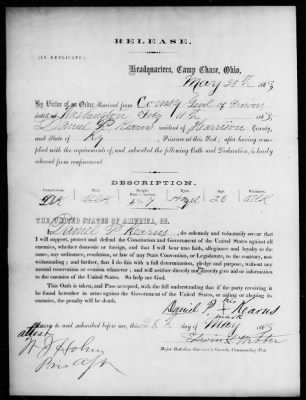 RELEASE.
[IN DUPLICATE.]
Headquarters, Camp Chase, Ohio,
May 28th 1863
By Virtue of an Order Received from Comsy Genl of Prisoners
dated at Washington City 1863,
Daniel P. Kearns resident of Harrison County,
and State of Ky, Prisoner at this Post; after having complied
with the requirements of, and subscribed the following Oath and Declaration, is hereby
released from confinement.
DESCRIPTION.
Complexion. Hair. Height. Eyes. Age. Whiskers.
Dark Dark 5-9 Hazel 20 Dark
THE UNITED STATES OF AMERICA, SS.
I Daniel P. Kearns do solemnly and voluntarily swear that
I will support, protect and defend the Constitution and Government of the United States against all
enemies, whether domestic or foreign, and that I will bear true faith, allegiance and loyalty to the
same, any ordinance, resolution, or law of any State Convention, or Legislature, to the contrary, not-
withstanding; and further, that I do this with a full determination, pledge and purpose, without any
mental reservation or evasion whatever; and will neither directly nor indirectly give aid or information
to the enemies of the United States. So help me God.
This Oath is taken, and Pass accepted, with the full understanding that if the party receiving it
be found hereafter in arms against the Government of the United States, or aiding or abetting its
enemies, the penalty will be death.
his
Daniel P. X Kearns
mark
Sworn to and subscribed before me, this 28th day of May 1863
attest
Edwin L. Webber
Major Battalion Governor's Guards, Commanding Post